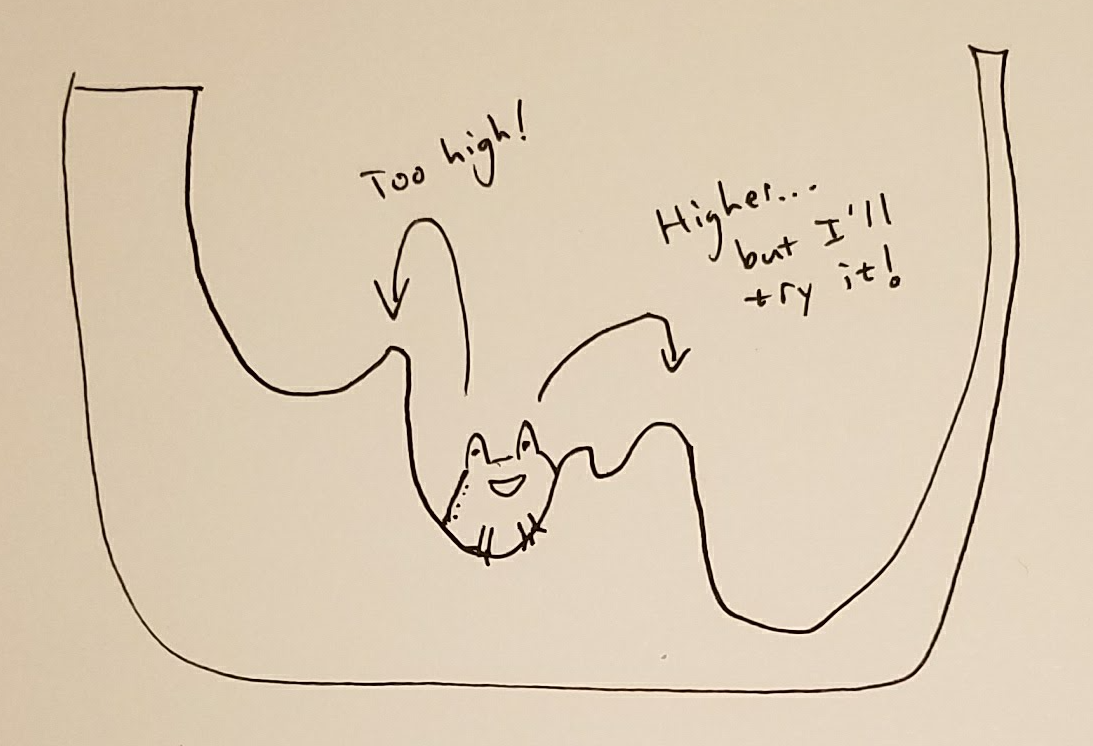 Too high!
Higher...
but I'll
try it!